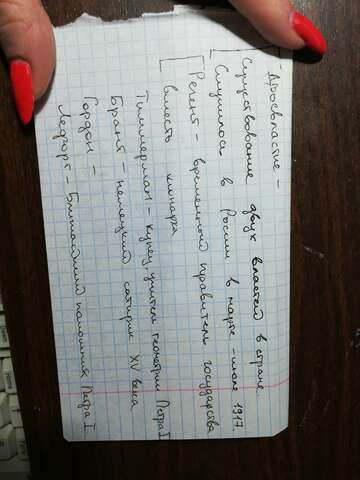 - Двоевластие -
существование двух властей в стране.
Случилось в России в марте - июле 1917.
Регент - временный правитель государства
вместо монарха
Тиммерман - купец, учитель геометрии Петра I
Брант - немецкий сатирик XV века
Гордон -
Лефорт - Ближайший помощник Петра I